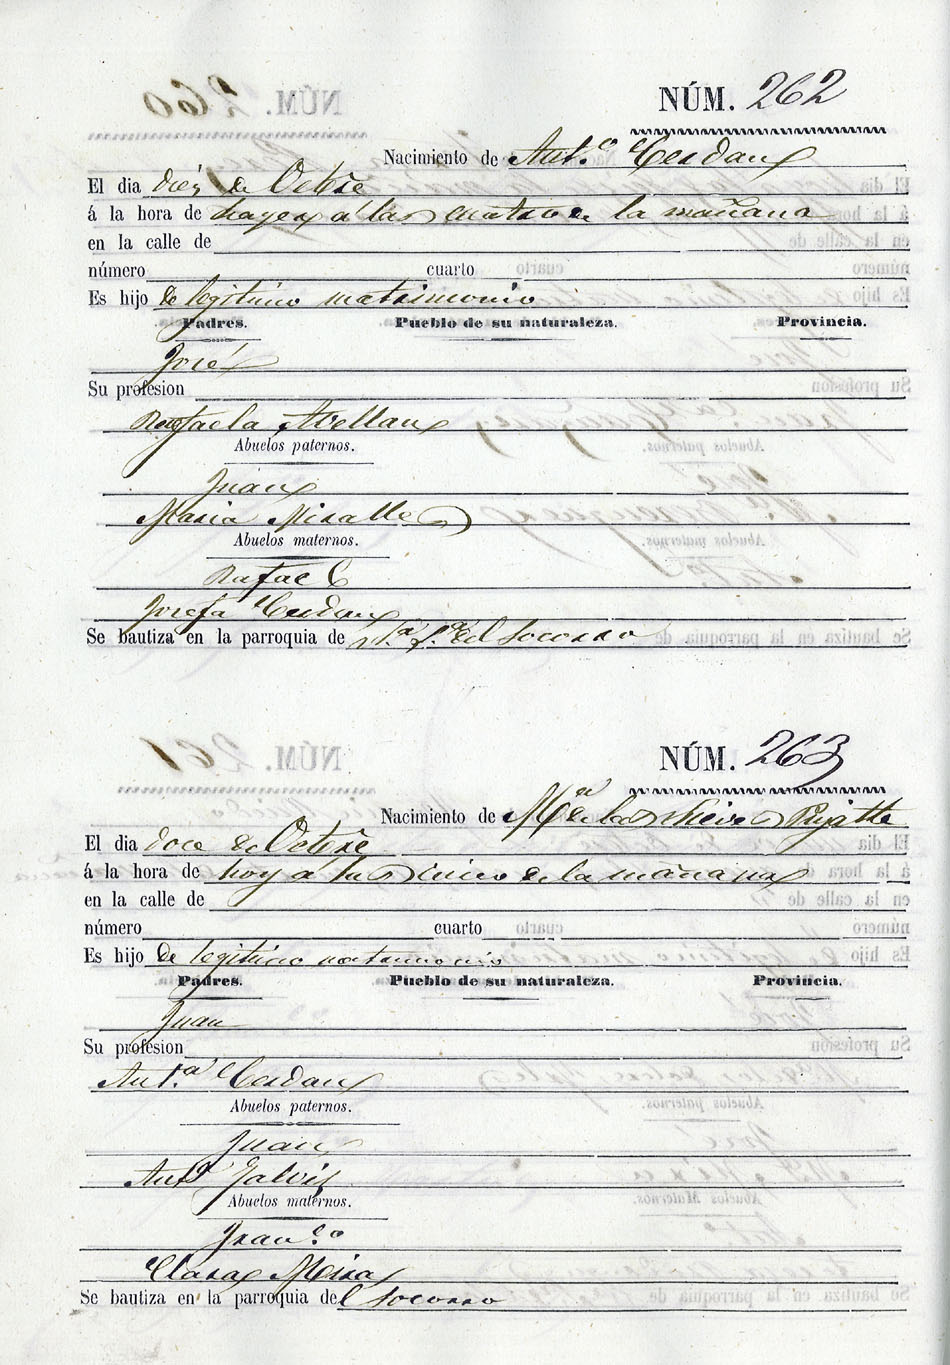 NÚM. 262
Nacimiento de Ant.º Cerdan
El dia diez de Octbre
á la hora de hayer á las cuatro de la mañana
en la calle de
número cuarto
Es hijo de legitimo matrimonio
Padres. Pueblo de su naturaleza. Provincia.
José
Su profesion
Rafaela Avellan
Abuelos paternos.
Juan
Maria Miralles
Abuelos maternos.
Rafael
Josefa Cerdan
Se bautiza en la parroquia de N.ª S.ª del Socorro
NÚM. 263
Nacimiento de M.ª de las Nieves Pujalte
El dia doce de Octbre
á la hora de hoy á las cinco de la mañana
en la calle de
número cuarto
Es hijo de legitimo matrimonio
Padres. Pueblo de su naturaleza. Provincia.
Juan
Su profesion
Ant.ª Cerdan
Abuelos paternos.
Juan
Ant.ª Galvis
Abuelos maternos.
Fran.co
Clara Mira
Se bautiza en la parroquia del Socorro